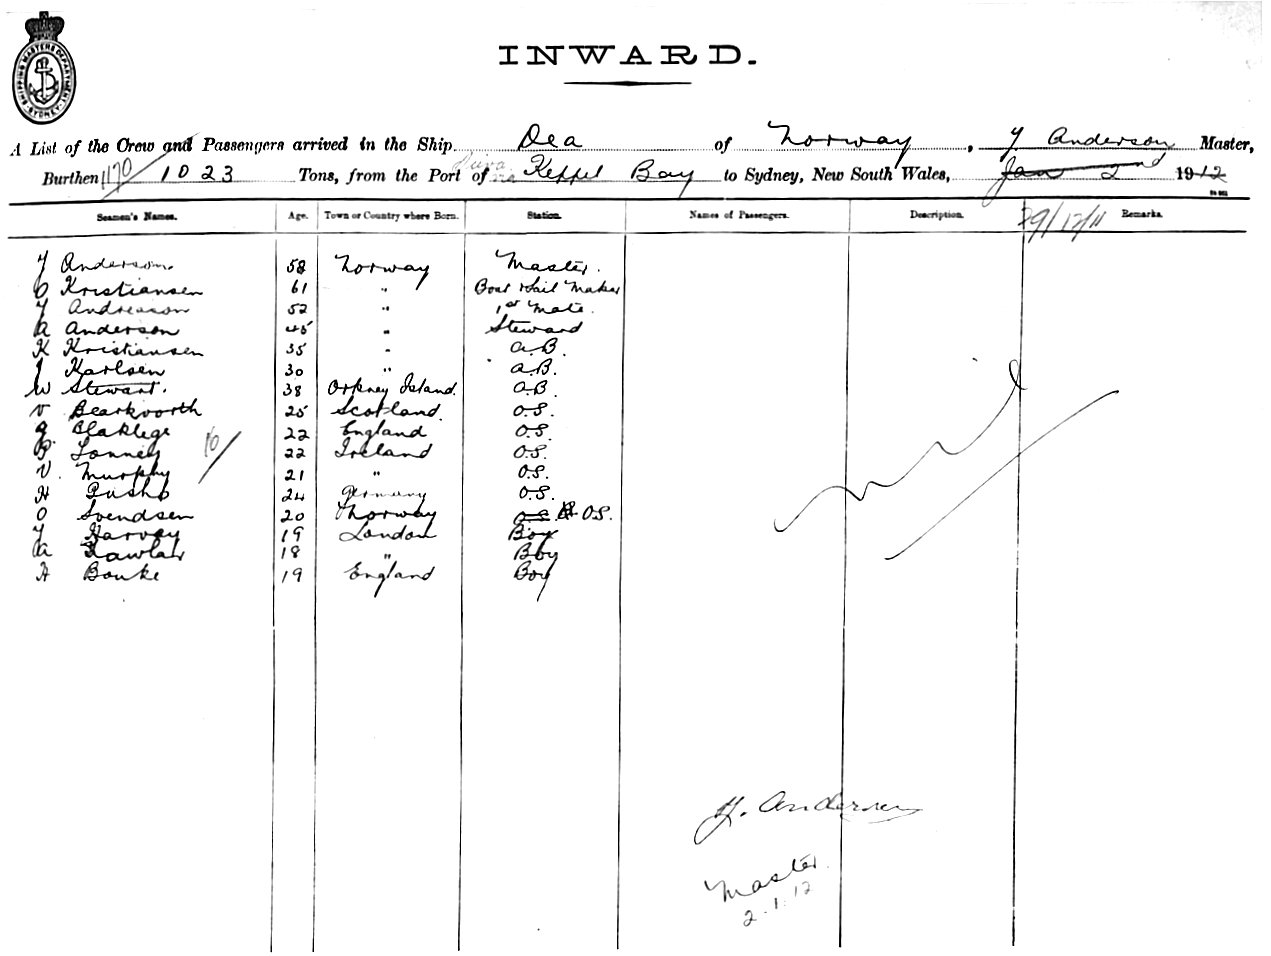 SHIPPING MASTERS DEPARTMENT SYDNEY
INWARD.
A List of the Crew and Passengers arrived in the Ship Dea of Norway, Y Anderson Master,
Burthen 1170/1023 Tons, from the Port of Keppel Bay to Sydney, New South Wales, Jan 2nd 1912
29/12/11
Seamen's Names. Age. Town or Country where Born. Station. Names of Passengers. Description. Remarks.
Y Anderson. 58 Norway Master.
O Kristiansen 61 " Boat & Sail Maker
Y Andreason 52 " 1st Mate.
A Anderson 45 " Steward
K Kristiansen 35 " A.B.
J Karlsen 30 " A.B.
W Stewart. 38 Orkney Island. A.B.
V Bearkvorth 25 Scotland. O.S.
G. Blaklege 22 England O.S.
P 22 Ireland O.S.
V. Murphy 21 " O.S.
H 24 Germany O.S.
O Svendsen 20 Norway O.S. O.S.
Y Harvey 19 London Boy
A 18 " Boy
A Bouke 19 England Boy
16/
nil
Y. Andersen
Master.
2.1.12